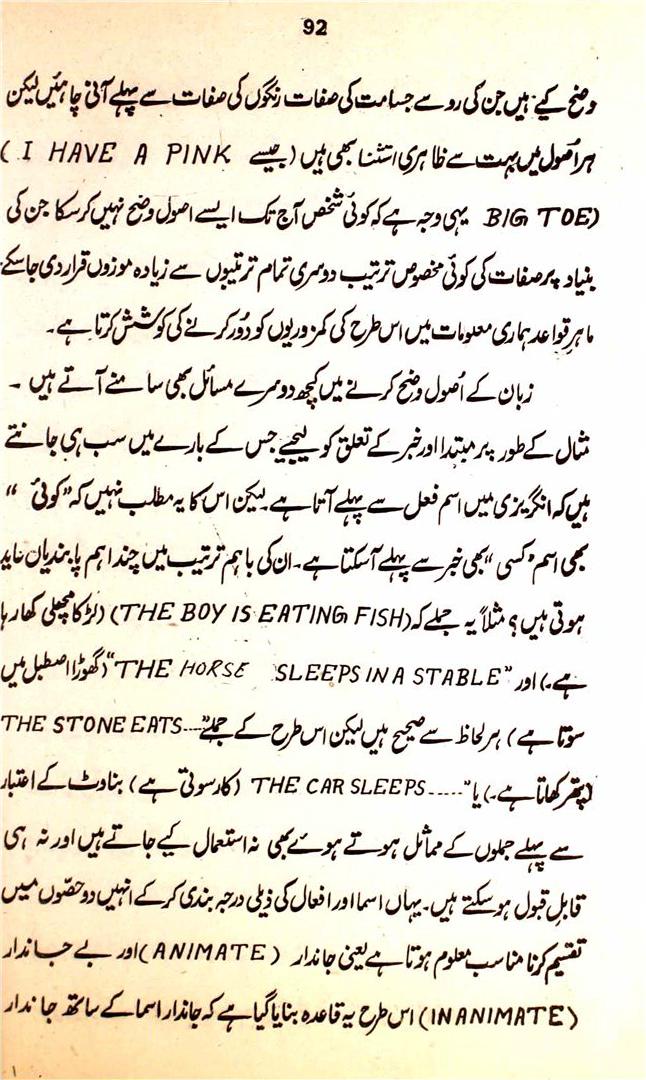 92
وضح کیے ہیں جن کی رو سے جسامت کی صفات رنگوں کی صفات سے پہلے آنی چاہئیں لیکن
ہر اُصول میں بہت سے ظاہری استثنا بھی ہیں (جیسے I HAVE A PINK (
BIG TOE) یہی وجہ ہے کہ کوئی شخص آج تک ایسے اصول وضح نہیں کر سکا جن کی
بنیاد پر صفات کی کوئی مخصوص ترتیب دوسری تمام ترتیبوں سے زیادہ موزوں قرار دی جا سکے
ماہرِ قواعد ہماری معلومات میں اس طرح کی کمزوریوں کو دُور کرنے کی کوشش کرتا ہے۔
زبان کے اُصول وضح کرنے میں کچھ دوسرے مسائل بھی سامنے آتے ہیں ۔
مثال کے طور پر مبتدا اور خبر کے تعلق کو لیجیے جس کے بارے میں سب ہی جانتے
ہیں کہ انگریزی میں اسم فعل سے پہلے آتا ہے۔ لیکن اس کا یہ مطلب نہیں کہ ”کوئی “
بھی اسم ”کسی “ بھی خبر سے پہلے آ سکتا ہے۔ ان کی باہم ترتیب میں چند اہم پابندیاں عاید
ہوتی ہیں؟ مثلاً یہ جملے کہ (THE BOY IS EATING FISH) (لڑکا مچھلی کھا رہا
ہے۔) اور ”THE HORSE SLEEPS IN A STABLE“ (گھوڑا اصطبل میں
سوتا ہے) ہر لحاظ سے صحیح ہیں لیکن اس طرح کے جملے ”THE STONE EATS---
(پتھر کھاتا ہے۔) یا ”THE CAR SLEEPS----- (کار سوتی ہے) بناوٹ کے اعتبار
سے پہلے جملوں کے مماثل ہوتے ہوئے بھی نہ استعمال کیے جاتے ہیں اور نہ ہی
قابلِ قبول ہو سکتے ہیں۔ یہاں اسما اور افعال کی ذیلی درجہ بندی کر کے انہیں دو حصّوں میں
تقسیم کرنا مناسب معلوم ہوتا ہے یعنی جاندار (ANIMATE) اور بے جاندار
(INANIMATE) اس طرح یہ قاعدہ بنایا گیا ہے کہ جاندار اسما کے ساتھ جاندار